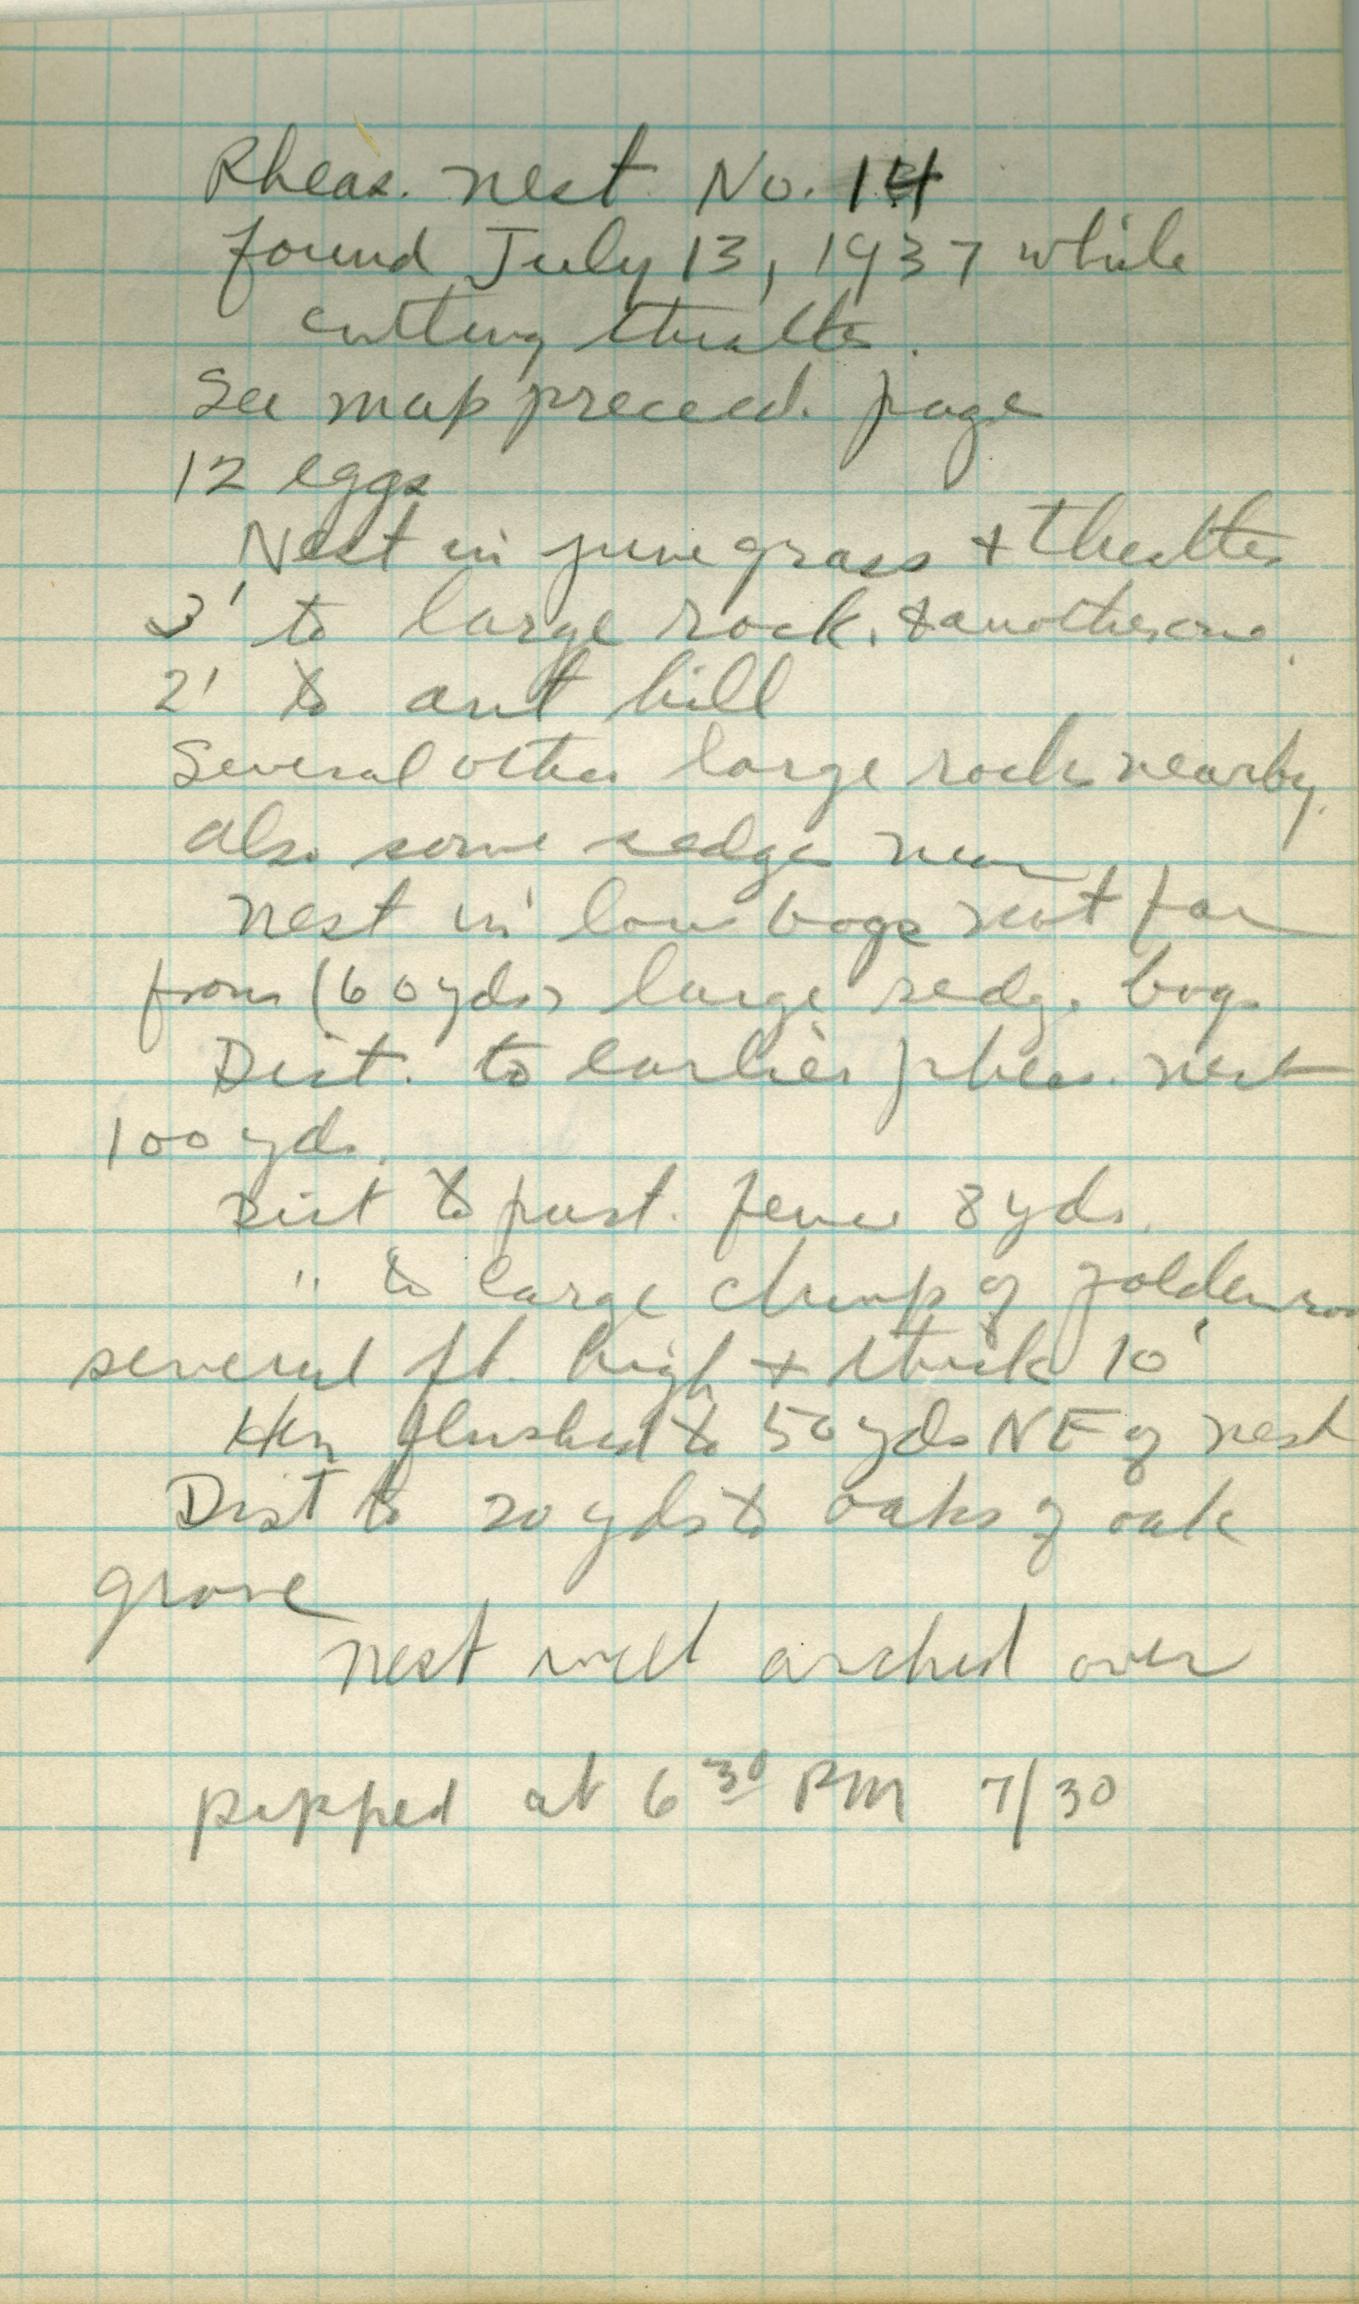 Pheas. nest No. 14
found July 13, 1937 while
cutting thistles.
See map preceed. page
12 eggs
Nest in june grass + thistles
3' to large rock. & another one.
2' to ant hill
Several other large rocks nearby.
also some sedge near
nest in low bogs not far
from (60 yds) large sedge bog.
Dist. to earlier pheas. nest
100 yds.
Dist to past. fence 8 yds.
" to large clump of goldenrod
several ft. high + thick 10'
Hen flushed to 50 yds NE of nest
Dist to 20 yds to oaks of oak
grove
nest well arched over
pipped at 6 30 PM 7/30